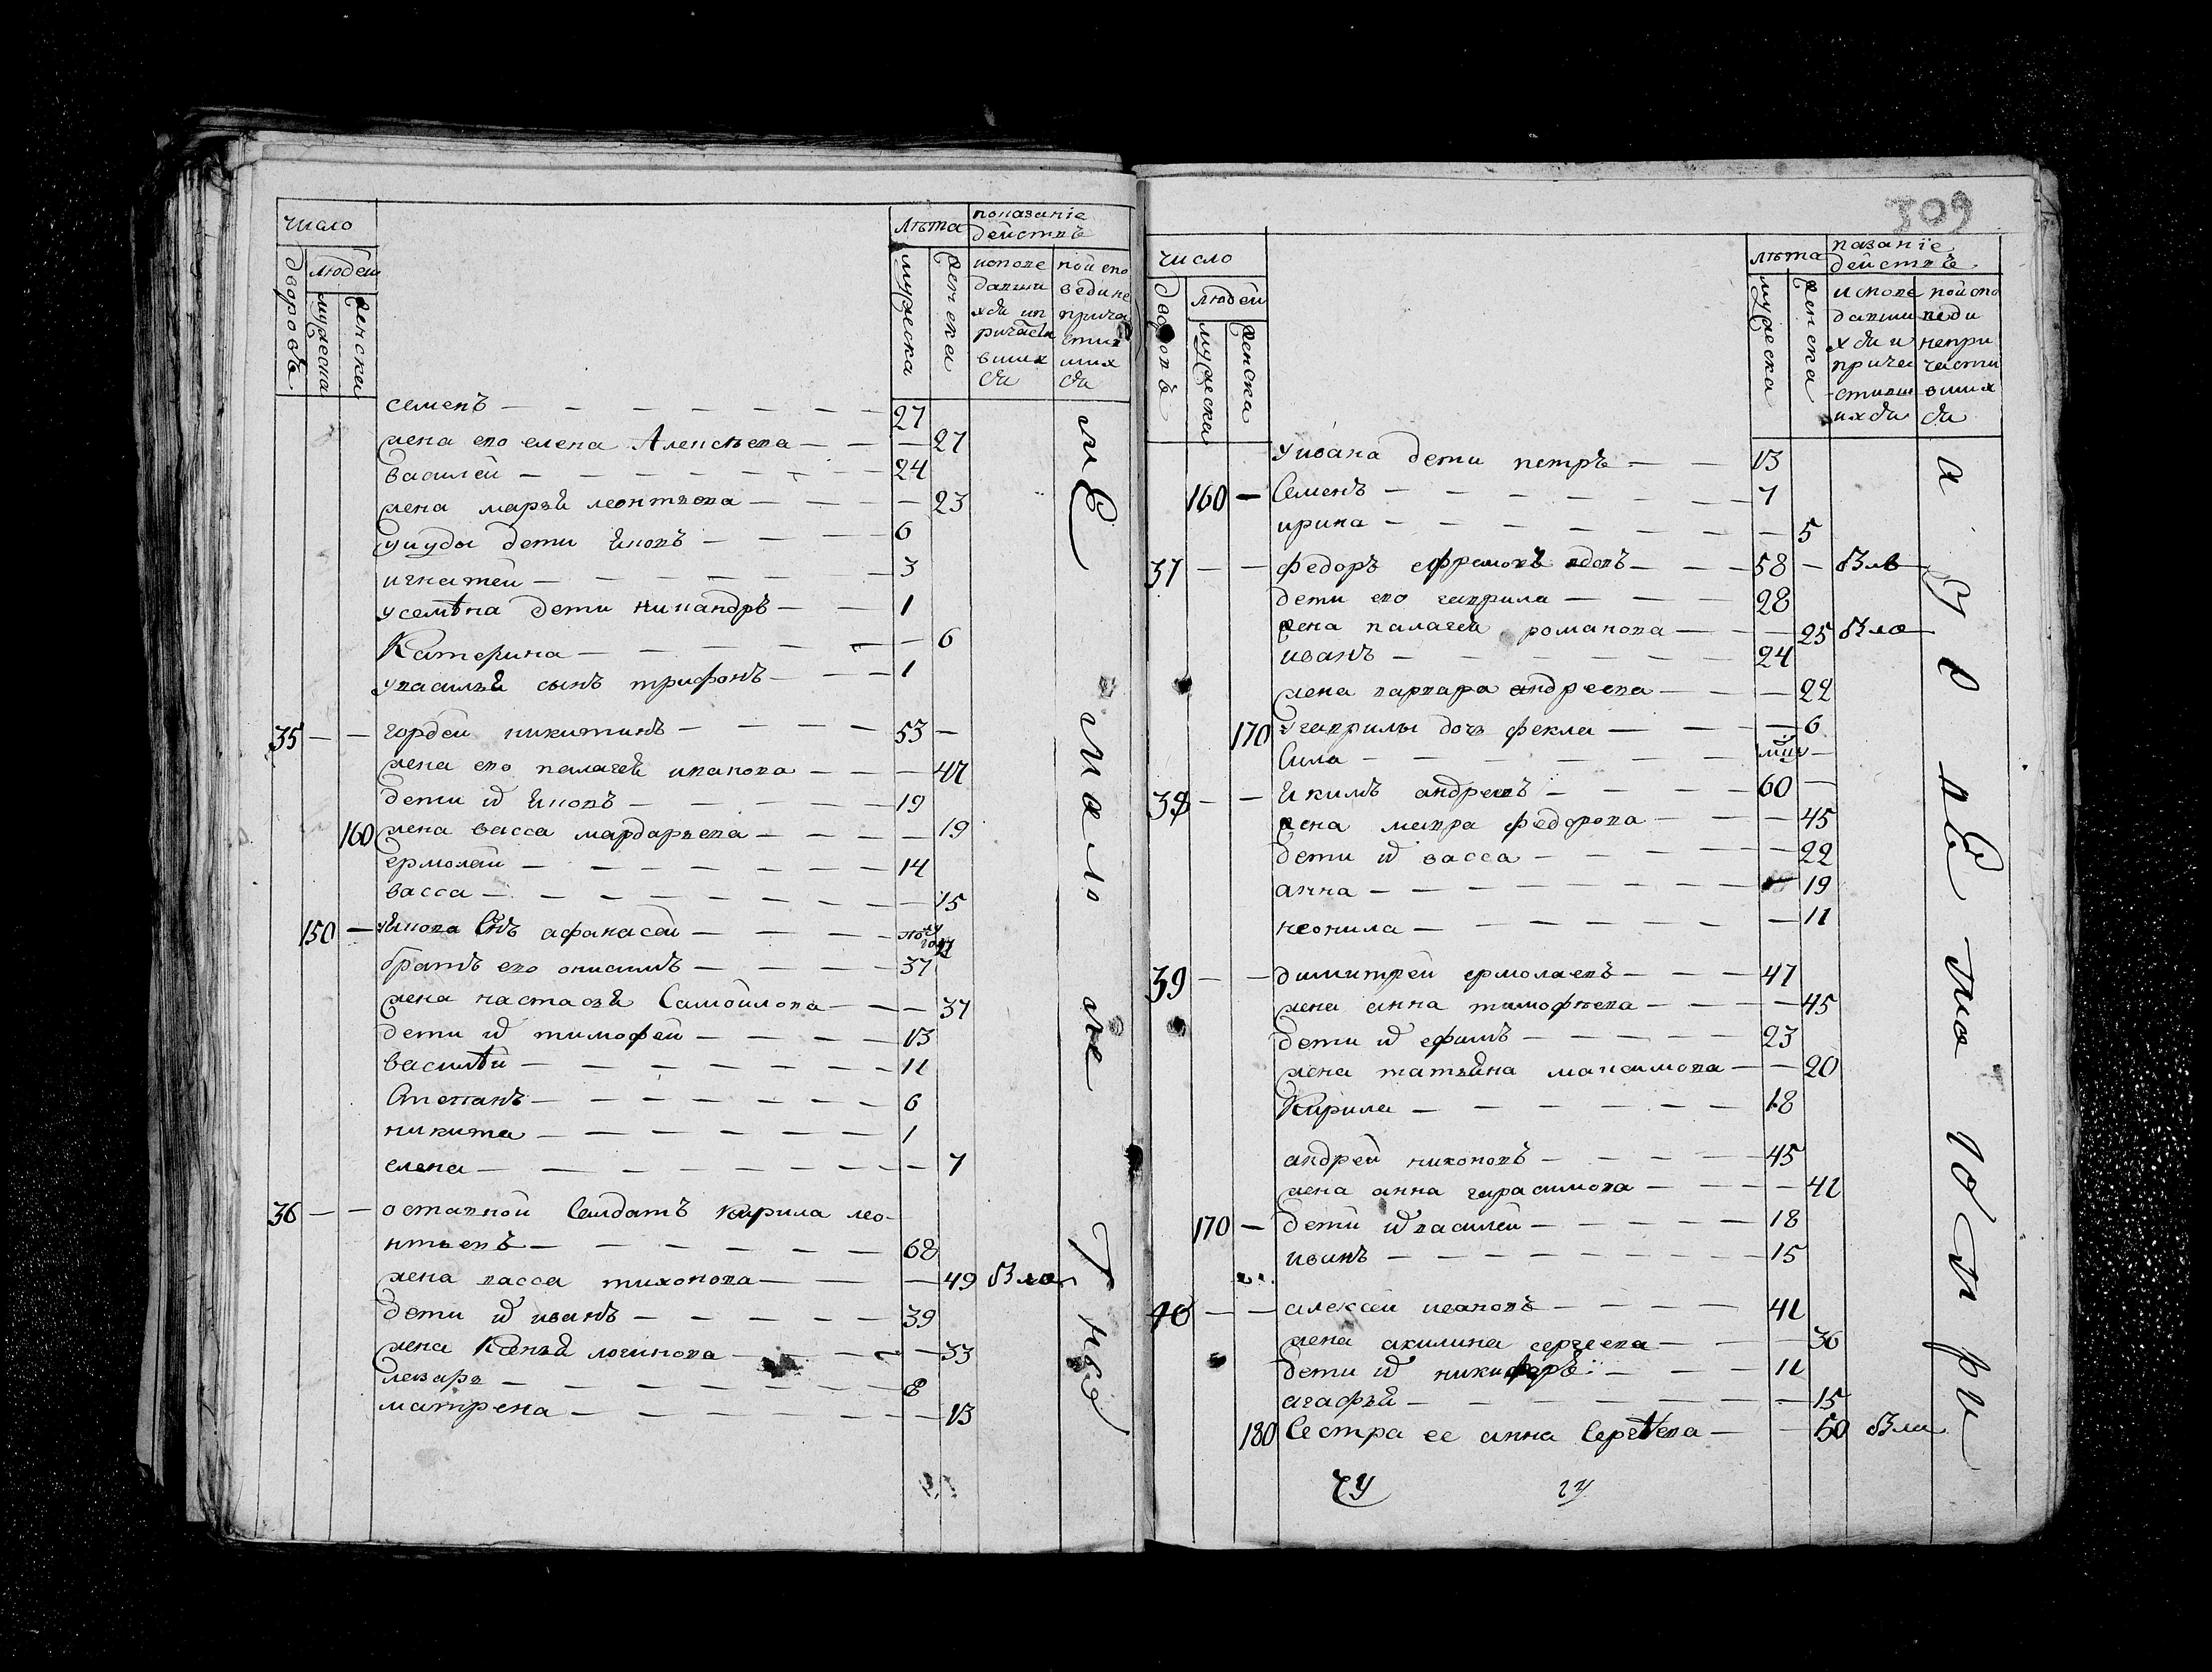 число
людей
дворовъ
мужеска
женска
лѣта
мужеска
женска
показаніе
действъ
исповедавшихся и причастившихся
семенъ — 27
жена ево елена Алексѣева — 27
василей — 24
жена марья леонтьева — 23
уиуды дети яковъ — 6
игнатей — 3
усемѣна дети никандръ — 1
Катерина — 6
увасилья сынъ трифонъ — 1
35 — — гордей никитинъ — 53 —
жена ево палагея иванова — 47
дети и҃х яковъ — 19
160 жена васса мардарьева — 19
ермолай — 14
васса — 15
150 — уякова с҃нъ афанасей —
братъ ево онисимъ — 37
жена настасья Самойлова — 37
дети и҃х тимофей — 13
василѣй — 11
Степанъ — 6
никита — 1
елена — 7
36 — — отставной Салдатъ кирила лео-
нтьевъ — 68
жена васса тихонова — 49
дети и҃х иванъ — 39
жена Ксенья логинова — 33
лазарь — 8
матрена — 13
309
число
людей
дворовъ
мужеска
женска
лѣта
мужеска
женска
казаніе
действъ
уивана дети петръ — 13
160 — Семенъ — 7
ирина — 5
37 — — федоръ ефремовъ вдовъ — 58 —
дети ево гаврила — 28
жена палагея романова — 25
иванъ — 24
жена варвара андреева — 22
170 угаврилы дочь фекла — 6
Сила —
38 — — якимъ андреевъ — 60 —
жена мавра федорова — 45
дети и҃х васса — 22
анна — 19
неонила — 11
39 — — димитрей ермолаевъ — 47
жена анна тимофѣева — 45
дети и҃х ефимъ — 23
жена татьяна максимова — 20
Кирила — 18
андрей никоновъ — 45
жена анна гарасимова — 41
170 — дети и҃х василей — 18
иванъ — 15
40 — — алексей ивановъ — 41
жена акилина сергеева — 36
дети и҃х никифоръ — 11
агафья — 15
180 Сестра ее анна Сергѣева — 50